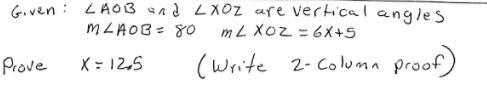 Given: ∠AOB and ∠XOZ are vertical angles
m∠AOB = 80 m∠XOZ = 6X+5
Prove X = 12.5 (Write 2-Column proof)